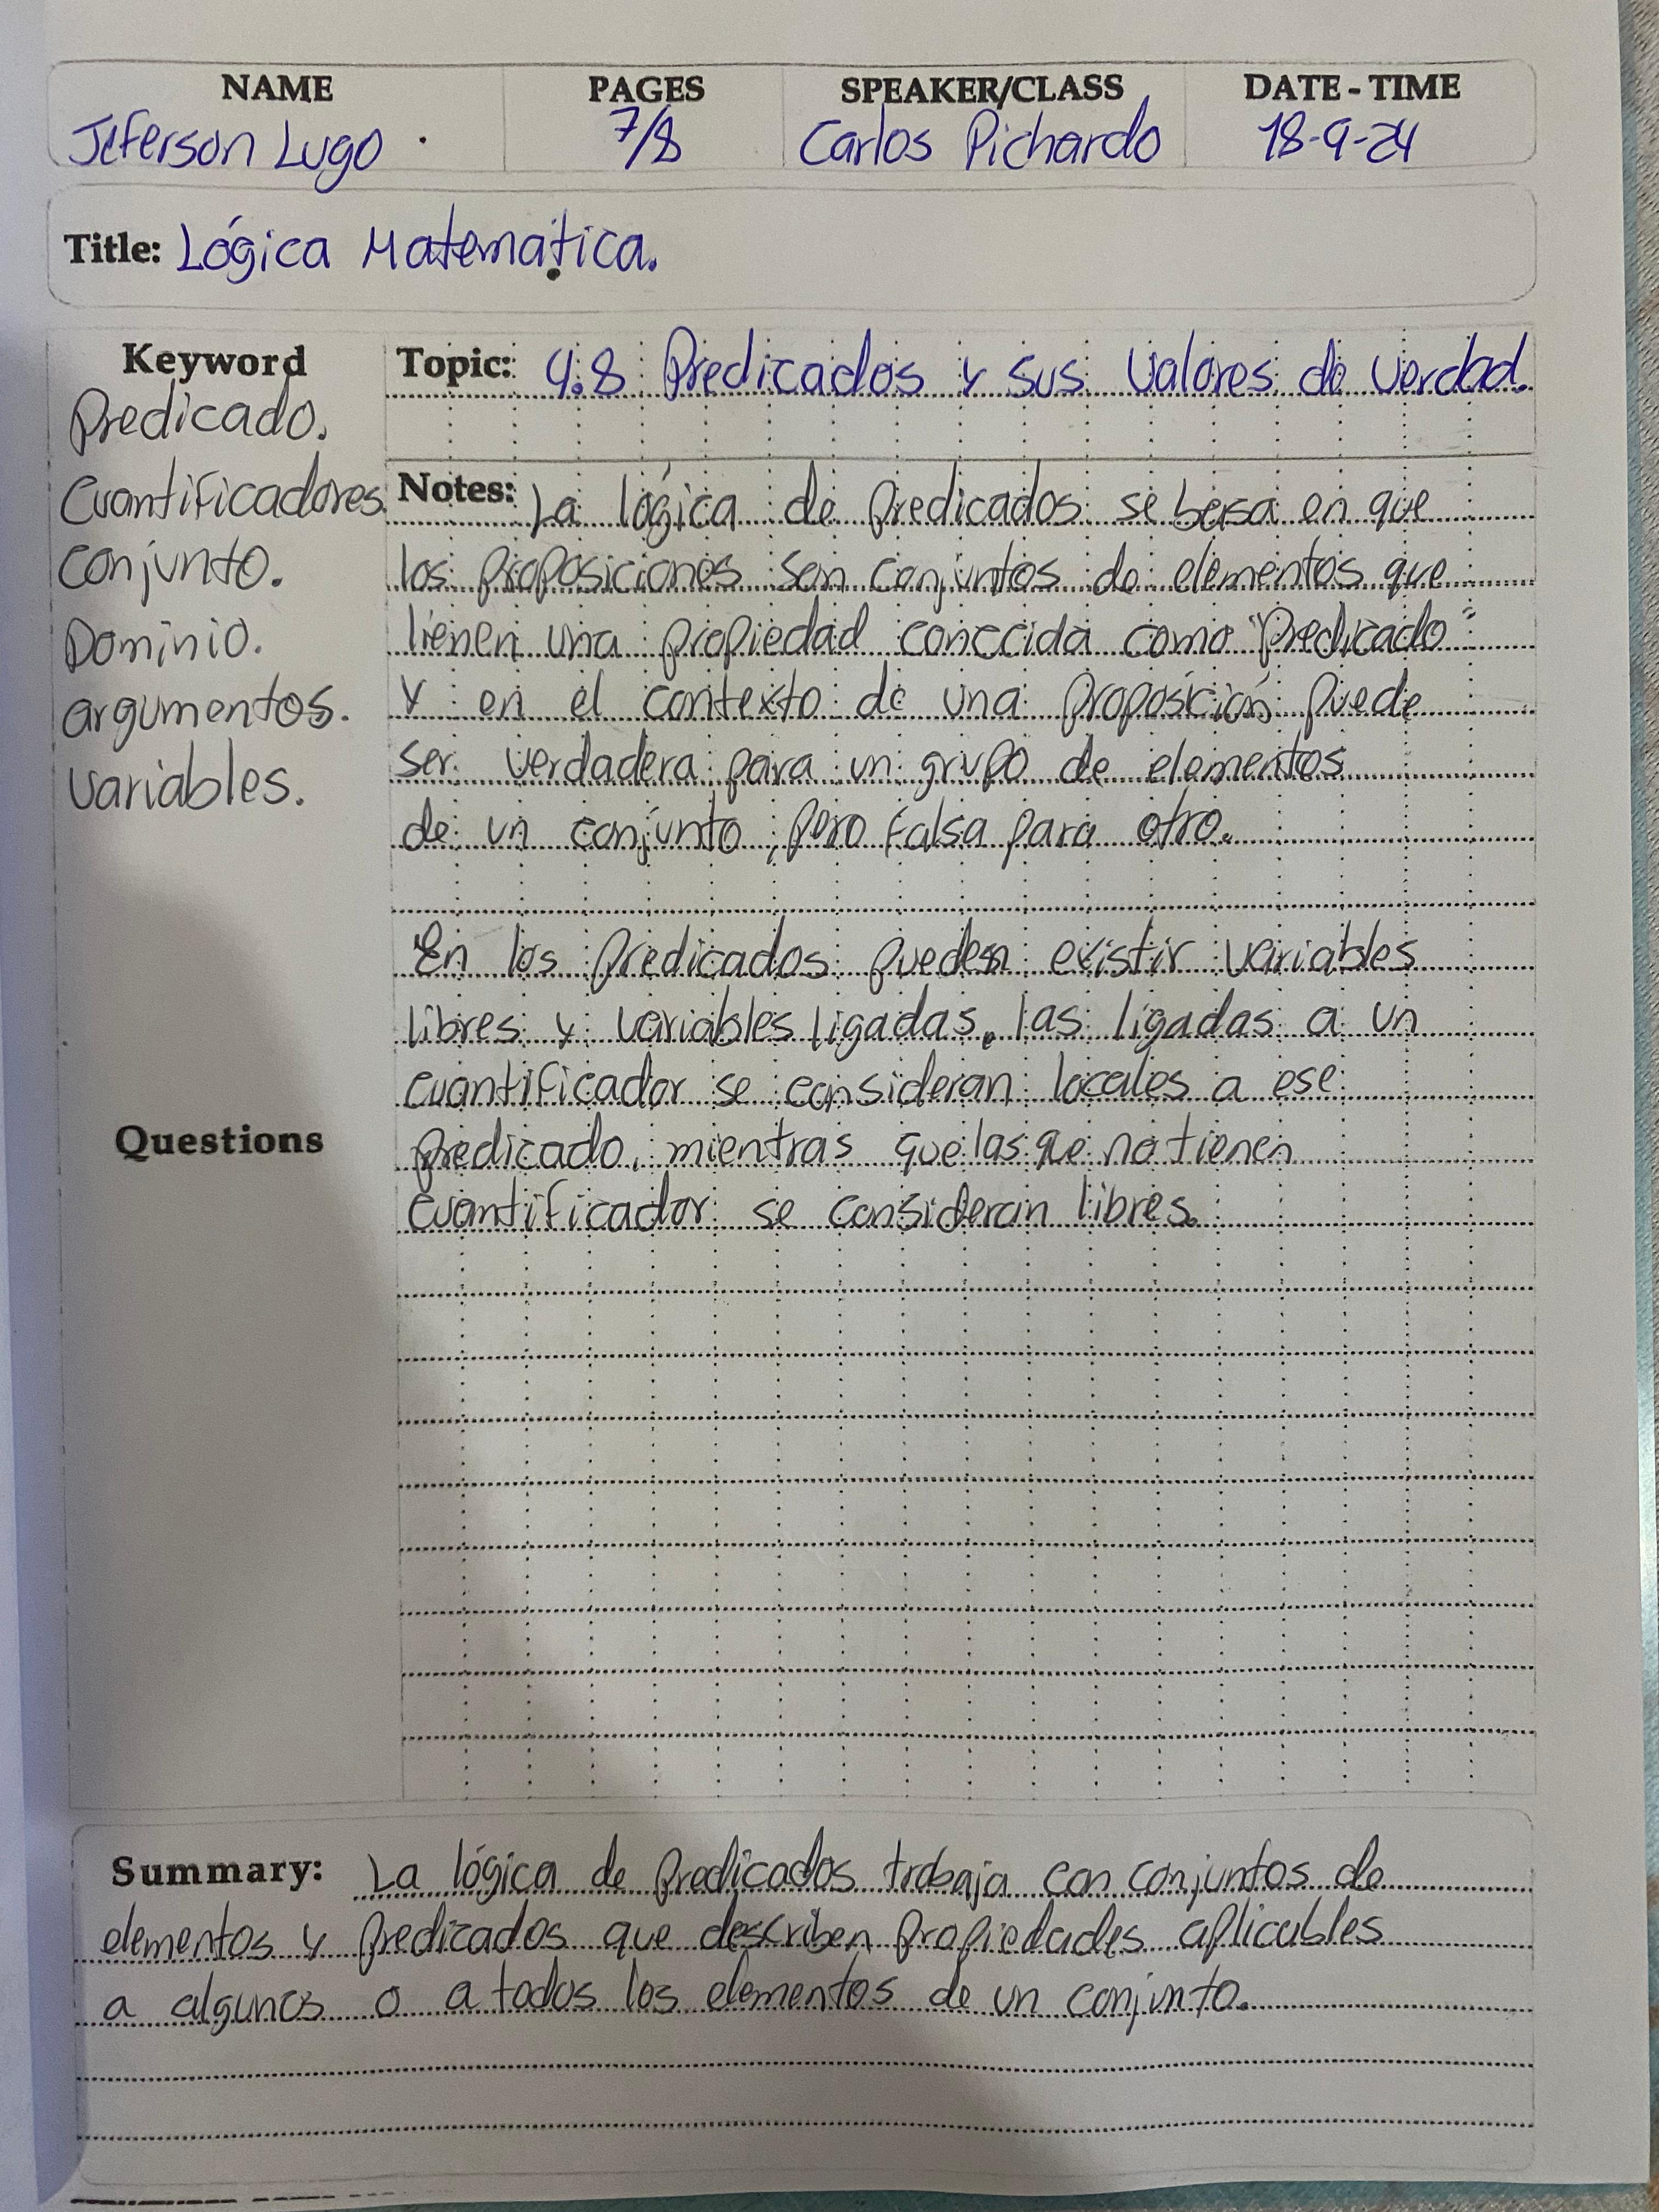 NAME PAGES SPEAKER/CLASS DATE - TIME
Jeferson Lugo . 7/8 Carlos Pichardo 18-9-24
Title: Lógica Matemática.
Keyword
Predicado.
Cuantificadores.
conjunto.
Dominio.
argumentos.
variables.
Questions
Topic: 4.8 Predicados y sus valores de verdad.
Notes: La lógica de predicados se basa en que
los proposiciones son conjuntos de elementos que
tienen una propiedad conocida como "Predicado"
y en el contexto de una proposición puede
ser verdadera para un grupo de elementos
de un conjunto, pero falsa para otro.
En los predicados pueden existir variables
libres y variables ligadas, las ligadas a un
cuantificador se consideran locales a ese
predicado, mientras que las que no tienen
cuantificador se consideran libres.
Summary: La lógica de predicados trabaja con conjuntos de
elementos y predicados que describen propiedades aplicables
a algunos o a todos los elementos de un conjunto.